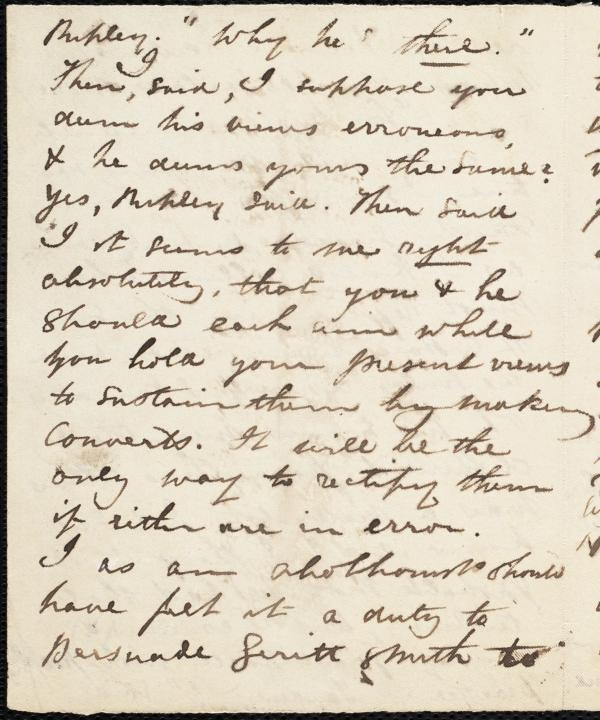 Ripley." Why he's there."
I
Then, said, I suppose you
deem his views erroneous,
& he deems yours the same?
Yes, Ripley said. Then said
I it seems to me right
absolutely, that you & he
should each aim while
you hold your present views
to sustain them by making
converts. It will be the
only way to rectify them
if either are in error.
I as an should
have felt it a duty to
Persuade Geritt Smith to